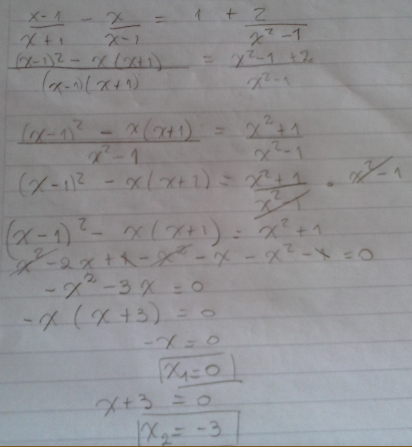 (x-1)/(x+1) - x/(x-1) = 1 + 2/(x²-1)
((x-1)² - x(x+1))/((x-1)(x+1)) = (x²-1+2)/(x²-1)
((x-1)² - x(x+1))/(x²-1) = (x²+1)/(x²-1)
(x-1)² - x(x+1) = (x²+1)/(x²-1) · x²-1
(x-1)² - x(x+1) = x²+1
x² - 2x + 1 - x² - x - x² - 1 = 0
-x² - 3x = 0
-x (x+3) = 0
-x = 0
x₁ = 0
x+3 = 0
x₂ = -3